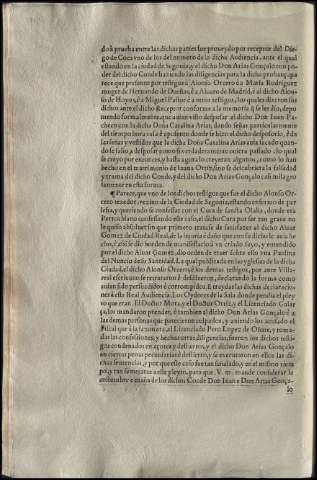 do à prueua entre las dichas partes fue proueydo por receptor del Die-
go de Coca vno de los del numero de la dicha Audiencia, ante el qual
estando en la ciudad de Segouia, y el dicho Don Arias Gonçalo con po-
der del dicho Conde hazendo las diligencias para la dicha prouança, pa
rece que presento por testigos à Alonso Orcero à a Maria Rodriguez
muger de Hernando de Dueñas, é a Aluaro de Madrid, é al dicho Alon-
so de Hoyos, é a Miguel Pastor é a otros testigos, los quales dizeron sus
dichos ante el dicho Receptor conforme a la memoria q se les dio, depo
niendo formalmente, que auian visto desposar al dicho Don Iuan Pa-
checo con la dicha Doña Catalina Arias, dando señas particularmente
del tiempo hora y casa é aposiento donde le hizo el dicho desposorio, é da
las señas y vestidos que la dicha Doña Catalina Arias auia sacado quan-
do se salio a desposar como si verdaderamente ouiera passado, lo qual
se creyo por entonces, y hasta agora lo creyeran algunos, como lo han
hecho en el matrimonio de Iuana Ortiz, sino se descubriera la falsedad
y trama del dicho Conde, é del dicho Don Arias Gonçalo cassi milagro
samente en esta forma.
¶ Parece, que vno de los dichos testigos que fue el dicho Alonso Or-
cero texedor, vezino de la Ciudad de Segouia, estando enfermo de per
lesia, y queriendo se confessar con el Cura de sancta Olalla, donde era
Parrochiano confessandole este caso, el dicho Cura por ser tan graue no
le quiso absoluer sin que primero tratase de satisfazer al dicho Aluar
Gomez de Ciudad Real, de la infamia é daño que con su dicho le auia he
cho, é assi se dio horden de manifestallo à vn criado suyo, y entendido
por el dicho Aluar Gomez, dio orden de traer sobre ello vna Paulina
del Nuncio de su Santidad, La qual publicada en las yglesias de la dicha
Ciudad el dicho Alonso Orcero é los demas testigos, por ante Villa-
real escriuano se retrataron é desdixeron, declarando la forma como
auian sido persuadidos é corrompidos, é traydas las dichas declaracio-
nes à esta Real Audiencia. Los Oydores de la Sala donde pendia el pley
to que eran. El Doctor Mora, y el Doctor Ortiz, y el Licenciado Golar
ça, los mandaron prender, é tambien al dicho Don Arias Gonçalo é a
las demas personas que parecieron culpados, y auiendo los acusado el
Fiscal que à la sazon era, el Licenciado Pero Lopez de Oñate, y toma-
das las confessiones, y hechas otras diligencias, fueron los dichos testi-
gos condenados en açotes y destierros, y el dicho Don Arias Gonçalo
en ciertas penas pecuniarias é destierro, y se executaron en ellos las di-
chas sentencias, y por que este caso fue tan señalado, y en el mismo tiem
po, y tan semejante a este pleyto, para que V. m. mande considerar la
costumbre é maña de los dichos Conde Don Iuan e Don Arias Gonça-
lo